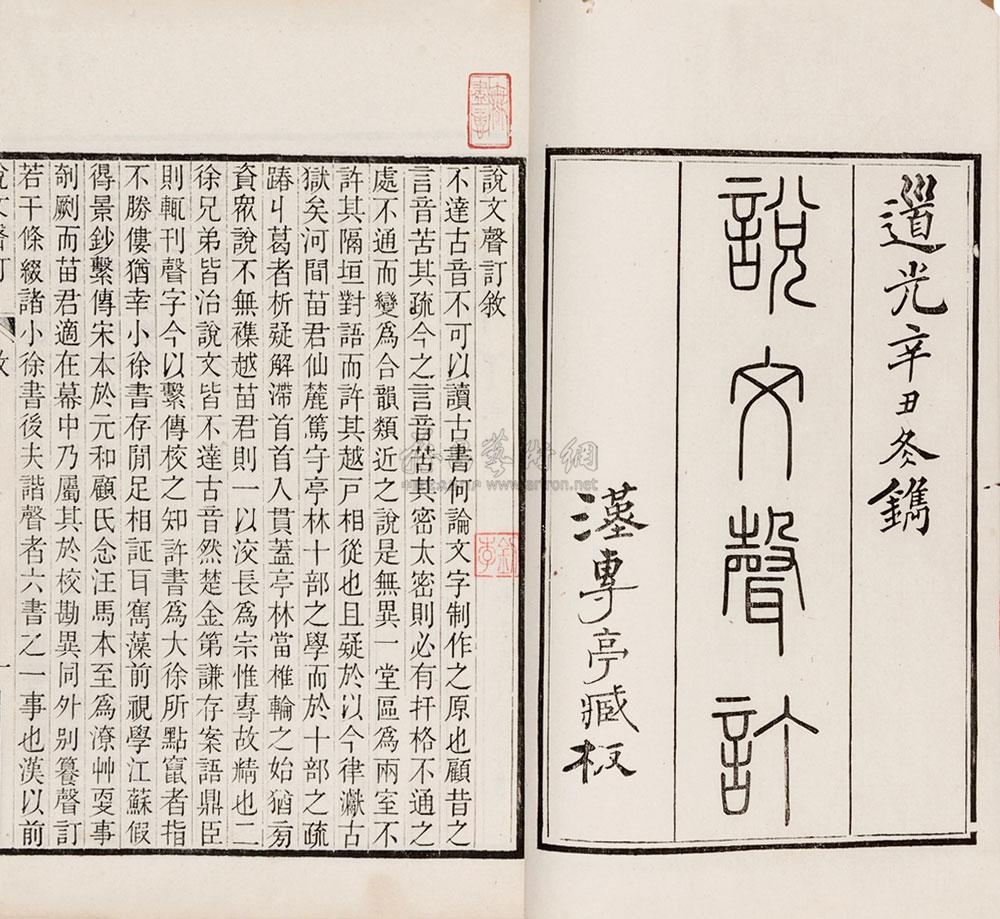 道光辛丑冬鐫
說文聲訂
漢專亭臧板
說文聲訂敘
不達古音不可以讀古書何論文字制作之原也顧昔之
言音苦其疏今之言音苦其密太密則必有扞格不通之
處不通而變爲合韻類近之說是無異一堂區爲兩室不
許其隔垣對語而許其越戸相從也且疑於以今律讞古
獄矣河間苗君仙麓篤守亭林十部之學而於十部之疏
踳丩葛者析疑解滯首首入貫蓋亭林當椎輪之始猶旁
資眾說不無襍越苗君則一以洨長爲宗惟專故精也二
徐兄弟皆治說文皆不達古音然楚金第謙存案語鼎臣
則輒刊聲字今以繫傳校之知許書爲大徐所點竄者指
不勝僂猶幸小徐書存閒足相証耳寯藻前視學江蘇假
得景鈔繫傳宋本於元和顧氏念汪馬本至爲潦艸亟事
剞劂而苗君適在幕中乃屬其於校勘異同外別籑聲訂
若干條綴諸小徐書後夫諧聲者六書之一事也漢以前
說文聲訂 敘 一
藝術網
www.artron.net